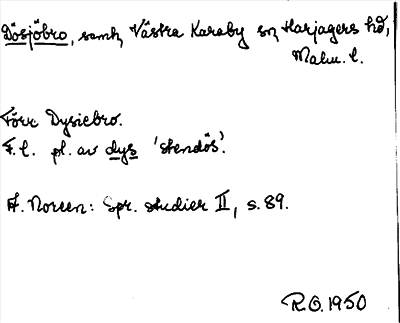 Dösjöbro, samh, Västra Karaby sn Harjagers hd,
Malm. l.
Förr Dysiebro.
F. l. pl. av dys 'stendös'.
A. Noreen: Spr. studier II, s. 89.
R.O. 1950